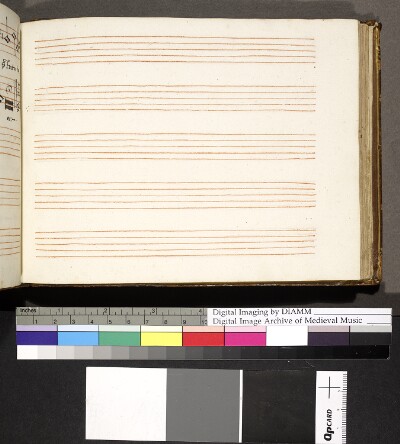 inches
1
2
3
4
5
6
7
8
9
Digital Imaging by DIAMM
Digital Image Archive of Medieval Music
QPCARD